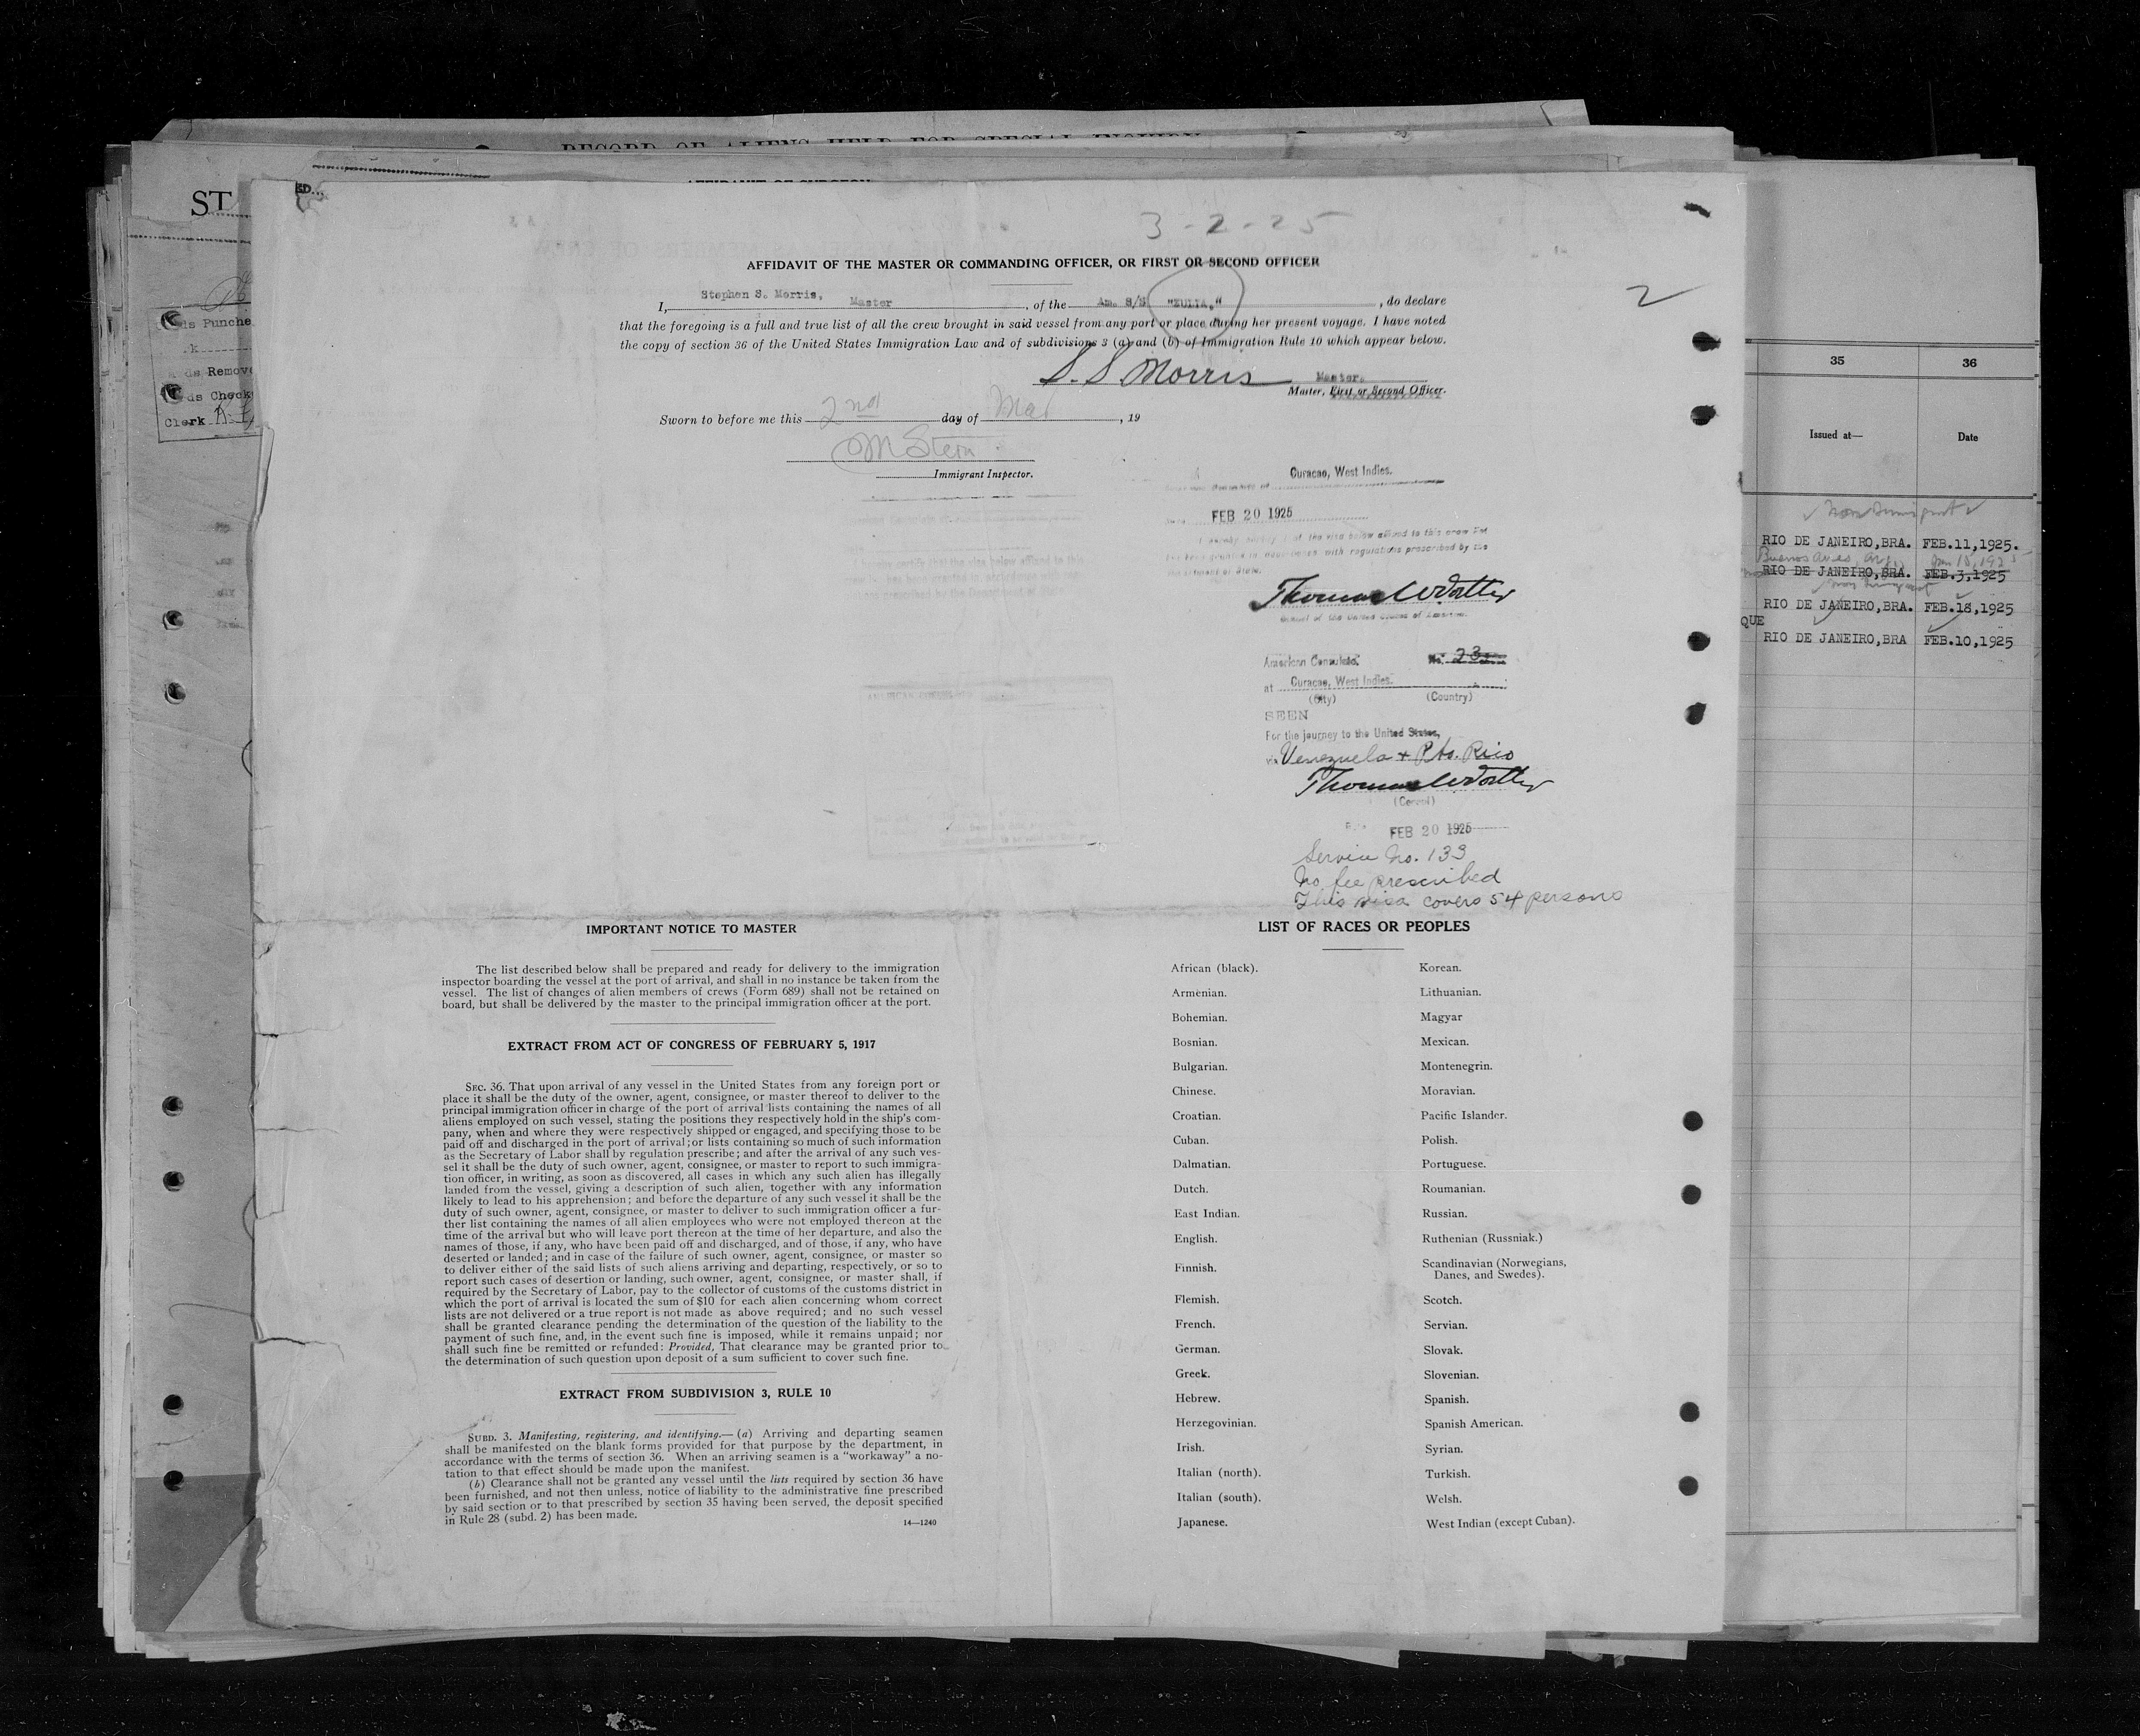 RECORD OF ALIENS HELD FOR SPECIAL INQUIRY
AFFIDAVIT OF SURGEON
ST
ds Punche
k
ds Remove
ds Check
Clerk
3-2-25
2
AFFIDAVIT OF THE MASTER OR COMMANDING OFFICER, OR FIRST OR SECOND OFFICER
I, Stephen S. Morris, Master, of the Am. S/S "ZULIA," , do declare
that the foregoing is a full and true list of all the crew brought in said vessel from any port or place during her present voyage. I have noted
the copy of section 36 of the United States Immigration Law and of subdivisions 3 (a) and (b) of Immigration Rule 10 which appear below.
S. S Morris Master.
Master, First or Second Officer.
Sworn to before me this 2nd day of Mar, 19
M Stern
Immigrant Inspector.
Curacao, West Indies.
FEB 20 1925
I hereby certify of the visa below affixed to this crew list
has been granted in accordance with regulations prescribed by the
Department of State.
Consul of the United States of America.
American Consulate. No. 23
at Curacao, West Indies.
(City) (Country)
SEEN
For the journey to the United States,
via Venezuela + Pto. Rico
(Consul)
FEB 20 1925
Service No. 133
No fee prescribed
This visa covers 54 persons
IMPORTANT NOTICE TO MASTER
The list described below shall be prepared and ready for delivery to the immigration
inspector boarding the vessel at the port of arrival, and shall in no instance be taken from the
vessel. The list of changes of alien members of crews (Form 689) shall not be retained on
board, but shall be delivered by the master to the principal immigration officer at the port.
EXTRACT FROM ACT OF CONGRESS OF FEBRUARY 5, 1917
SEC. 36. That upon arrival of any vessel in the United States from any foreign port or
place it shall be the duty of the owner, agent, consignee, or master thereof to deliver to the
principal immigration officer in charge of the port of arrival lists containing the names of all
aliens employed on such vessel, stating the positions they respectively hold in the ship's com-
pany, when and where they were respectively shipped or engaged, and specifying those to be
paid off and discharged in the port of arrival; or lists containing so much of such information
as the Secretary of Labor shall by regulation prescribe; and after the arrival of any such ves-
sel it shall be the duty of such owner, agent, consignee, or master to report to such immigra-
tion officer, in writing, as soon as discovered, all cases in which any such alien has illegally
landed from the vessel, giving a description of such alien, together with any information
likely to lead to his apprehension; and before the departure of any such vessel it shall be the
duty of such owner, agent, consignee, or master to deliver to such immigration officer a fur-
ther list containing the names of all alien employees who were not employed thereon at the
time of the arrival but who will leave port thereon at the time of her departure, and also the
names of those, if any, who have been paid off and discharged, and of those, if any, who have
deserted or landed; and in case of the failure of such owner, agent, consignee, or master so
to deliver either of the said lists of such aliens arriving and departing, respectively, or so to
report such cases of desertion or landing, such owner, agent, consignee, or master shall, if
required by the Secretary of Labor, pay to the collector of customs of the customs district in
which the port of arrival is located the sum of $10 for each alien concerning whom correct
lists are not delivered or a true report is not made as above required; and no such vessel
shall be granted clearance pending the determination of the question of the liability to the
payment of such fine, and, in the event such fine is imposed, while it remains unpaid; nor
shall such fine be remitted or refunded: Provided, That clearance may be granted prior to
the determination of such question upon deposit of a sum sufficient to cover such fine.
EXTRACT FROM SUBDIVISION 3, RULE 10
SUBD. 3. Manifesting, registering, and identifying.—(a) Arriving and departing seamen
shall be manifested on the blank forms provided for that purpose by the department, in
accordance with the terms of section 36. When an arriving seamen is a "workaway" a no-
tation to that effect should be made upon the manifest.
(b) Clearance shall not be granted any vessel until the lists required by section 36 have
been furnished, and not then unless, notice of liability to the administrative fine prescribed
by said section or to that prescribed by section 35 having been served, the deposit specified
in Rule 28 (subd. 2) has been made.
14—1240
LIST OF RACES OR PEOPLES
African (black).
Armenian.
Bohemian.
Bosnian.
Bulgarian.
Chinese.
Croatian.
Cuban.
Dalmatian.
Dutch.
East Indian.
English.
Finnish.
Flemish.
French.
German.
Greek.
Hebrew.
Herzegovinian.
Irish.
Italian (north).
Italian (south).
Japanese.
Korean.
Lithuanian.
Magyar
Mexican.
Montenegrin.
Moravian.
Pacific Islander.
Polish.
Portuguese.
Roumanian.
Russian.
Ruthenian (Russniak.)
Scandinavian (Norwegians,
Danes, and Swedes).
Scotch.
Servian.
Slovak.
Slovenian.
Spanish.
Spanish American.
Syrian.
Turkish.
Welsh.
West Indian (except Cuban).
35 36
Issued at— Date
Non Immigrant
RIO DE JANEIRO,BRA. FEB.11,1925.
Buenos Aires, Arg.
RIO DE JANEIRO,BRA. FEB.3,1925
RIO DE JANEIRO,BRA. FEB.18,1925
QUE
RIO DE JANEIRO,BRA FEB.10,1925